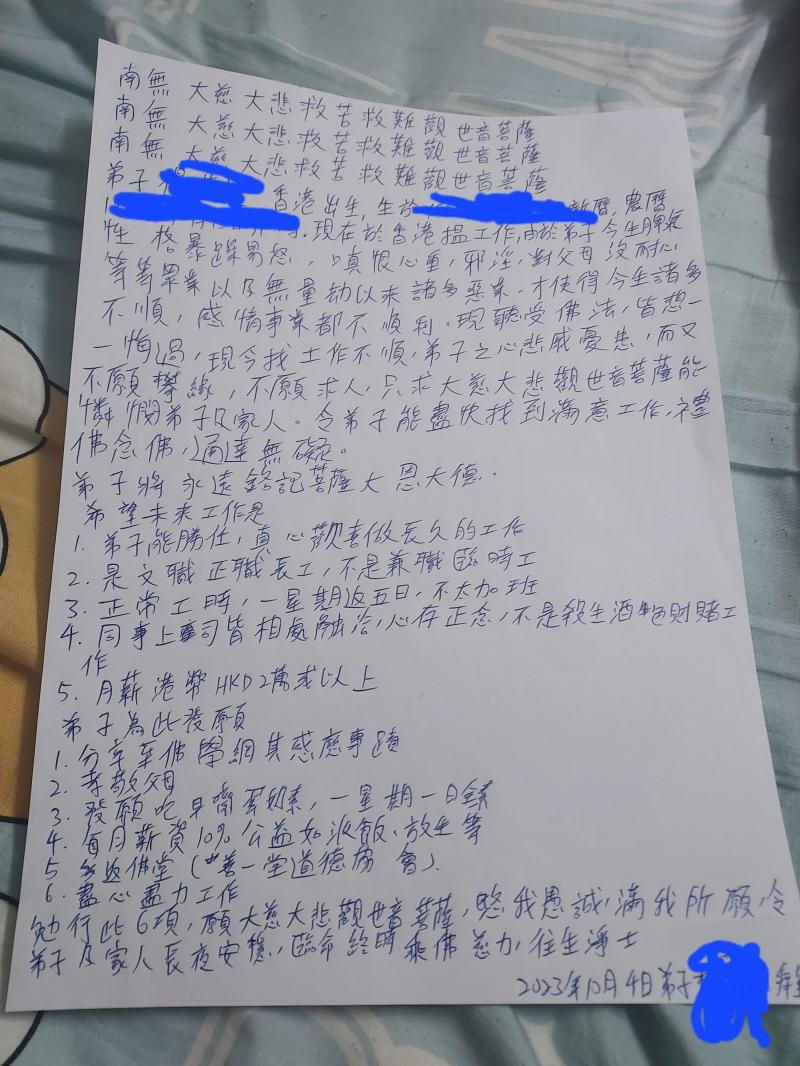 南無 大慈大悲救苦救難觀世音菩薩
南無 大慈大悲救苦救難觀世音菩薩
南無 大慈大悲救苦救難觀世音菩薩
弟子
香港出生, 生於 新曆, 農曆
現在於香港搵工作, 由於弟子今生脾氣
性格暴躁易怒, 嗔恨心重, 邪淫, 對父母沒耐心
等等罪業以及無量劫以來諸多惡業, 才使得今生諸多
不順, 感情事業都不順利. 現聽受佛法, 皆想一
一悔過, 現今找工作不順, 弟子之心悲戚憂患, 而又
不願攀緣, 不願求人, 只求大慈大悲觀世音菩薩能
憐憫弟子及家人。令弟子能盡快找到滿意工作, 禮
佛念佛, 通達無礙。
弟子將永遠銘記菩薩大恩大德.
希望未來工作是
1. 弟子能勝任, 真心歡喜做長久的工作
2. 是文職正職長工, 不是兼職臨時工
3. 正常工時, 一星期返五日, 不太加班
4. 同事上司皆相處融洽, 心存正念, 不是殺生酒色財賭工
作
5. 月薪港幣HKD2萬或以上
弟子為此發願
1. 分享至佛學網其感應事蹟
2. 孝敬父母
3. 發願吃早齋蛋奶素, 一星期一日全素
4. 每月薪資10%公益如派飯、放生等
5. 多返佛堂 (善一堂道德協會).
6. 盡心盡力工作
勉行此6項, 願大慈大悲觀世音菩薩, 愍我愚誠, 滿我所願, 令
弟子及家人長夜安穩, 臨命終時乘佛慈力, 往生淨土
2023年10月4日弟子